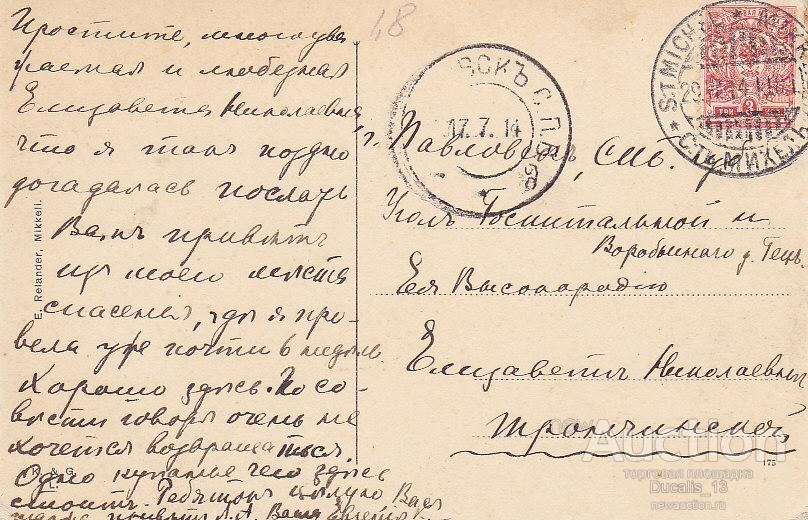 Простите, многоува
жаемая и любезная
Елизавета Николаевна,
что я такъ поздно
догадалась послать
Вамъ привѣтъ
изъ моего мѣста
спасенья, гдѣ я про-
вела уже почти 6 недѣль
Хорошо здѣсь. По со-
вѣсти говоря очень не
хочется возвращаться.
Одно купанье чего здѣсь
стоитъ. Ребятокъ цѣлую, Васъ
привѣтъ Ваша
1,8
E. Relander, Mikkeli.
K. & G.
ВСКЪ С.П.Б.
17.7.14
ST MICHEL
29.VII.14
С-ТЪ МИХЕЛЬ
3
г. Павловскъ, СПб. губ.
Уголъ Госпитальной и
Воробьинаго д. Гецъ
Ея Высокородію
Елизаветѣ Николаевнѣ
175
Auction
торговая площадка
Ducalis_13
newauction.ru